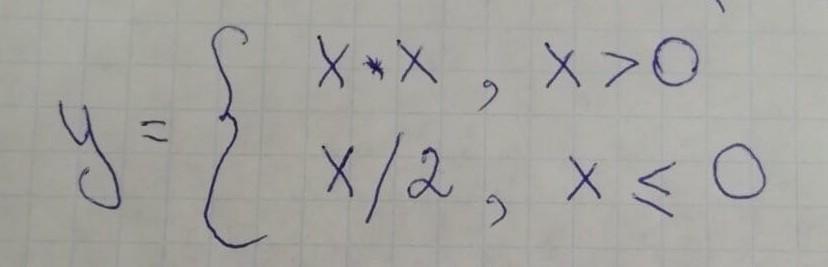 y = { x * x , x > 0
x / 2 , x ≤ 0